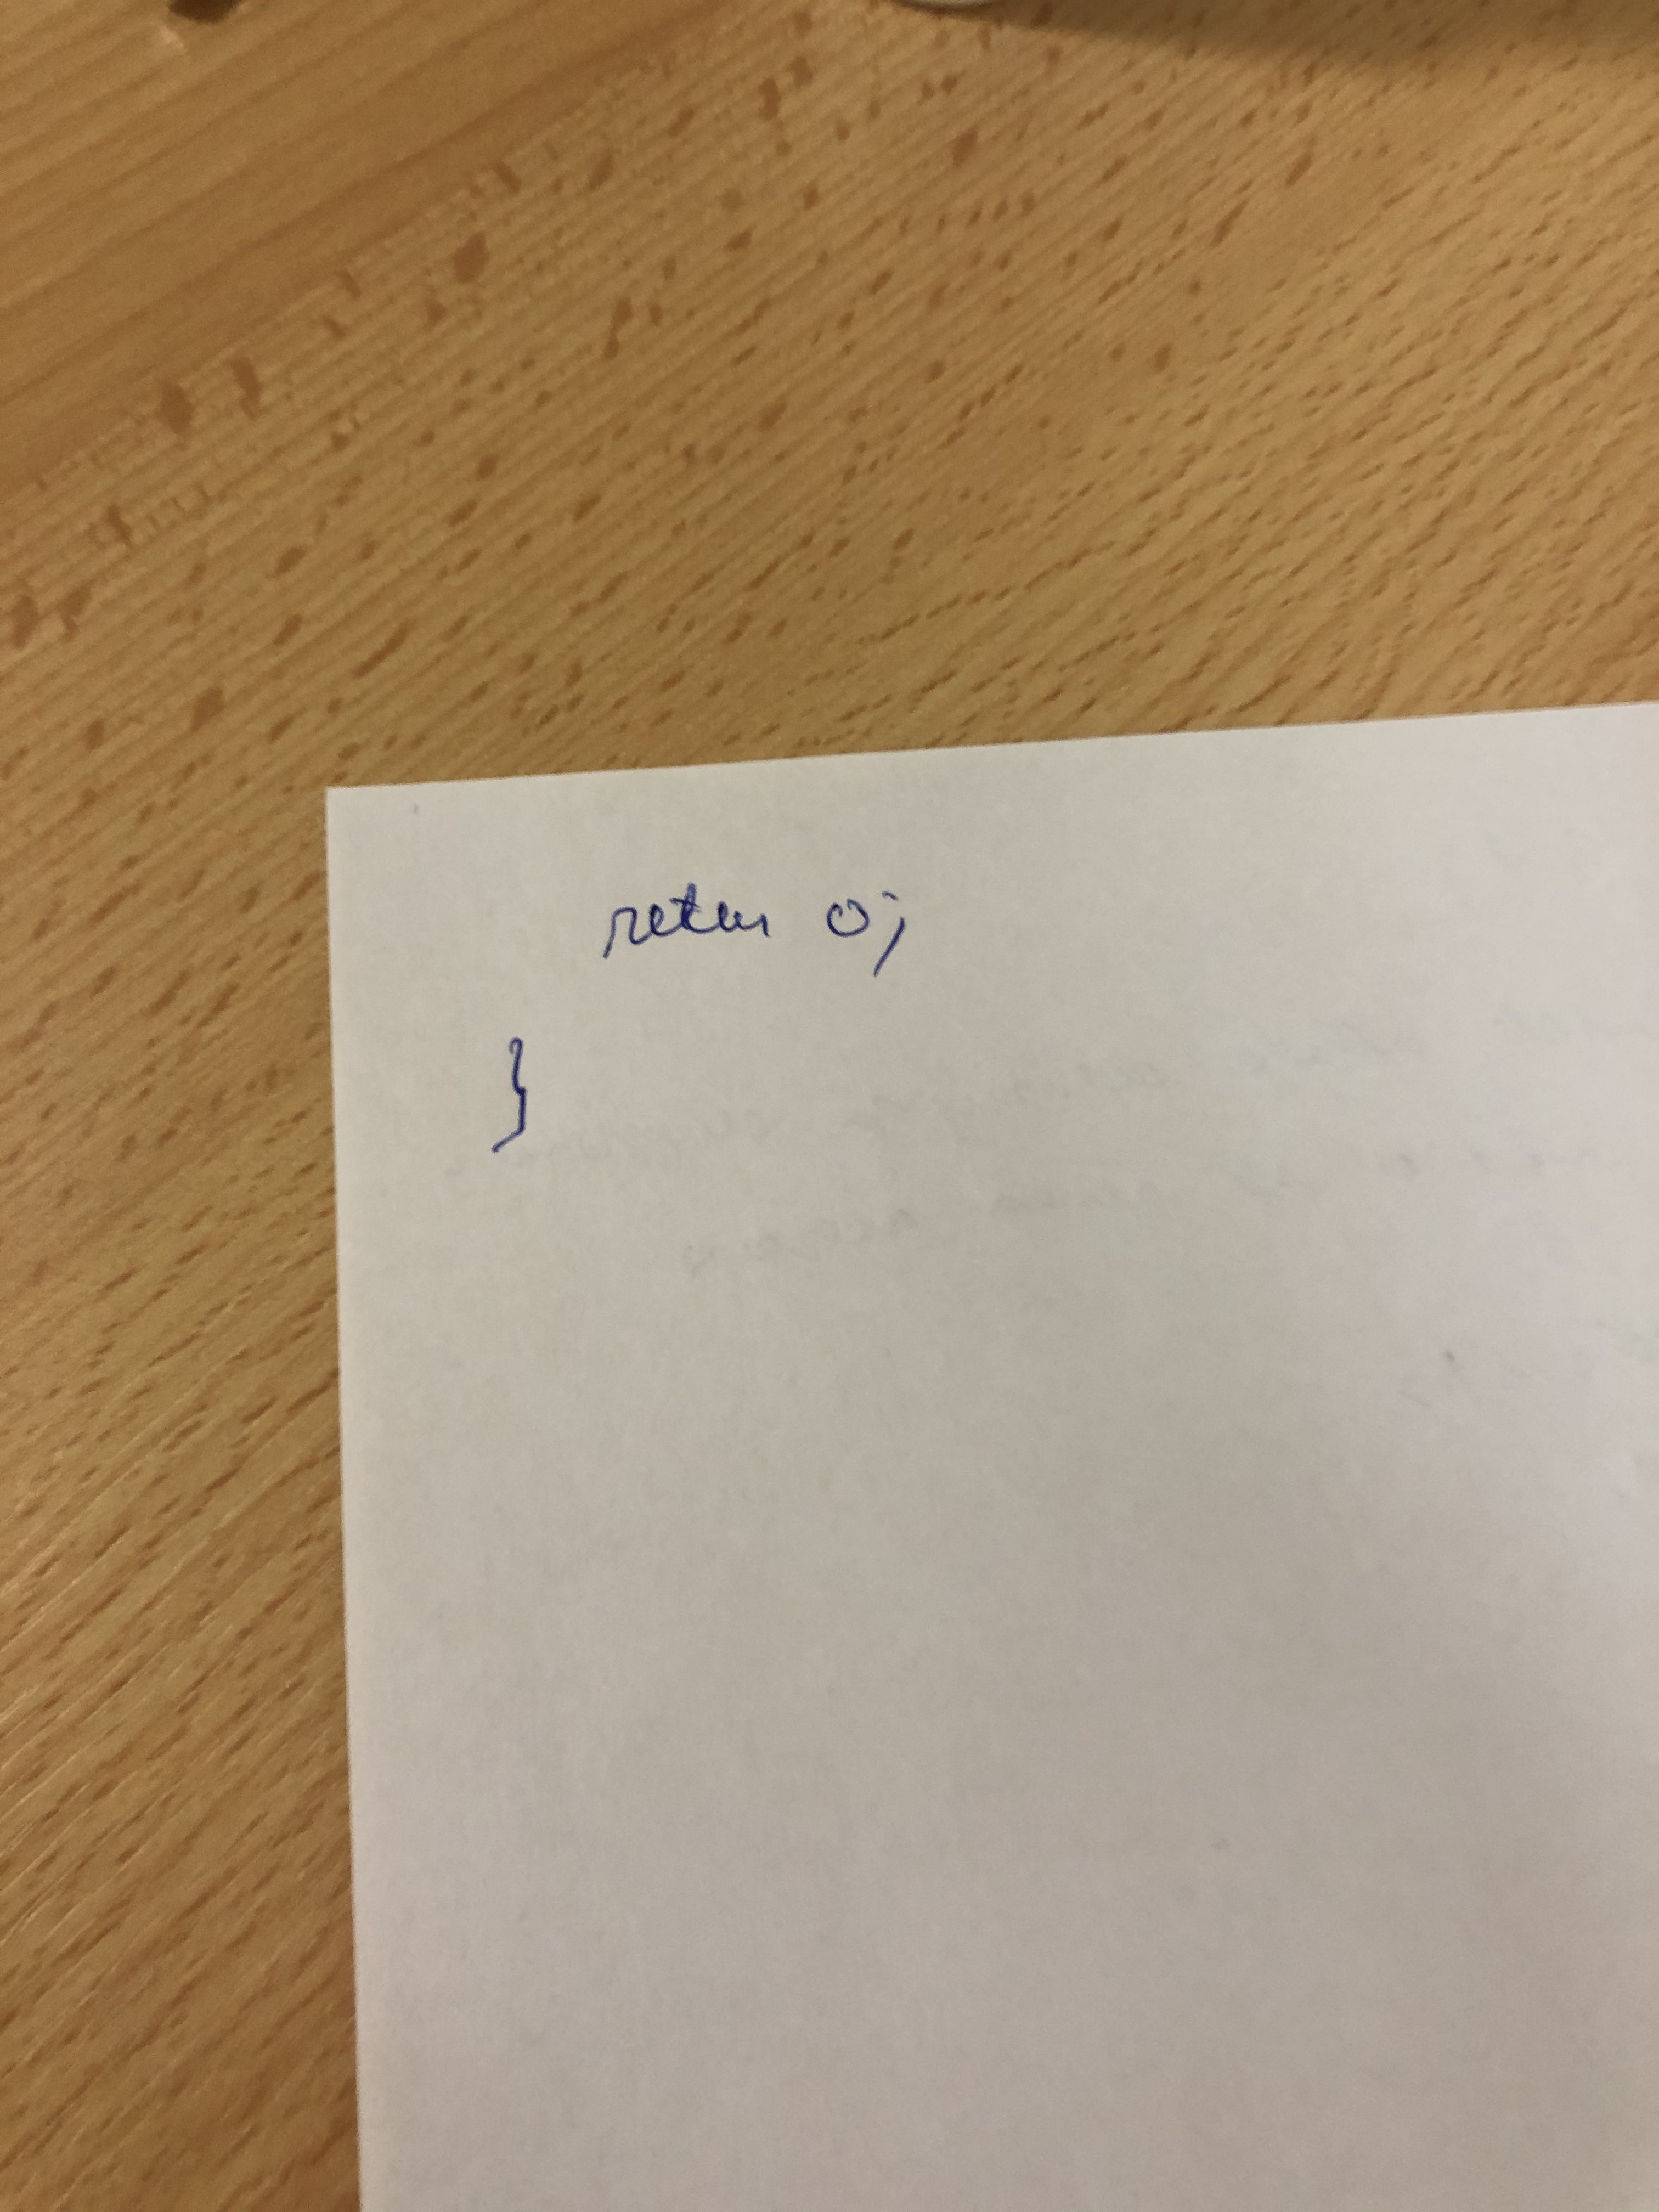 return 0;
}